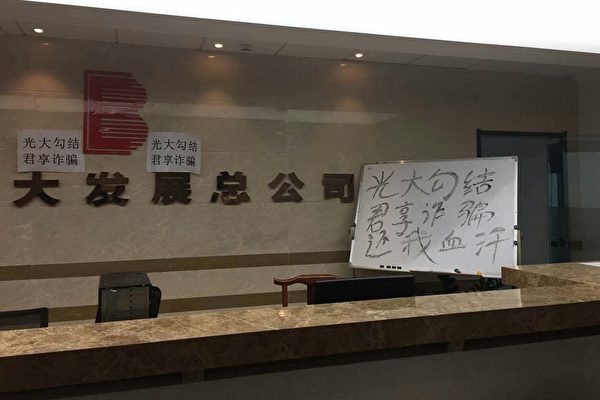 光大勾结
君享诈骗
光大勾结
君享诈骗
大发展总公司
光大勾结
君享诈骗
还我血汗